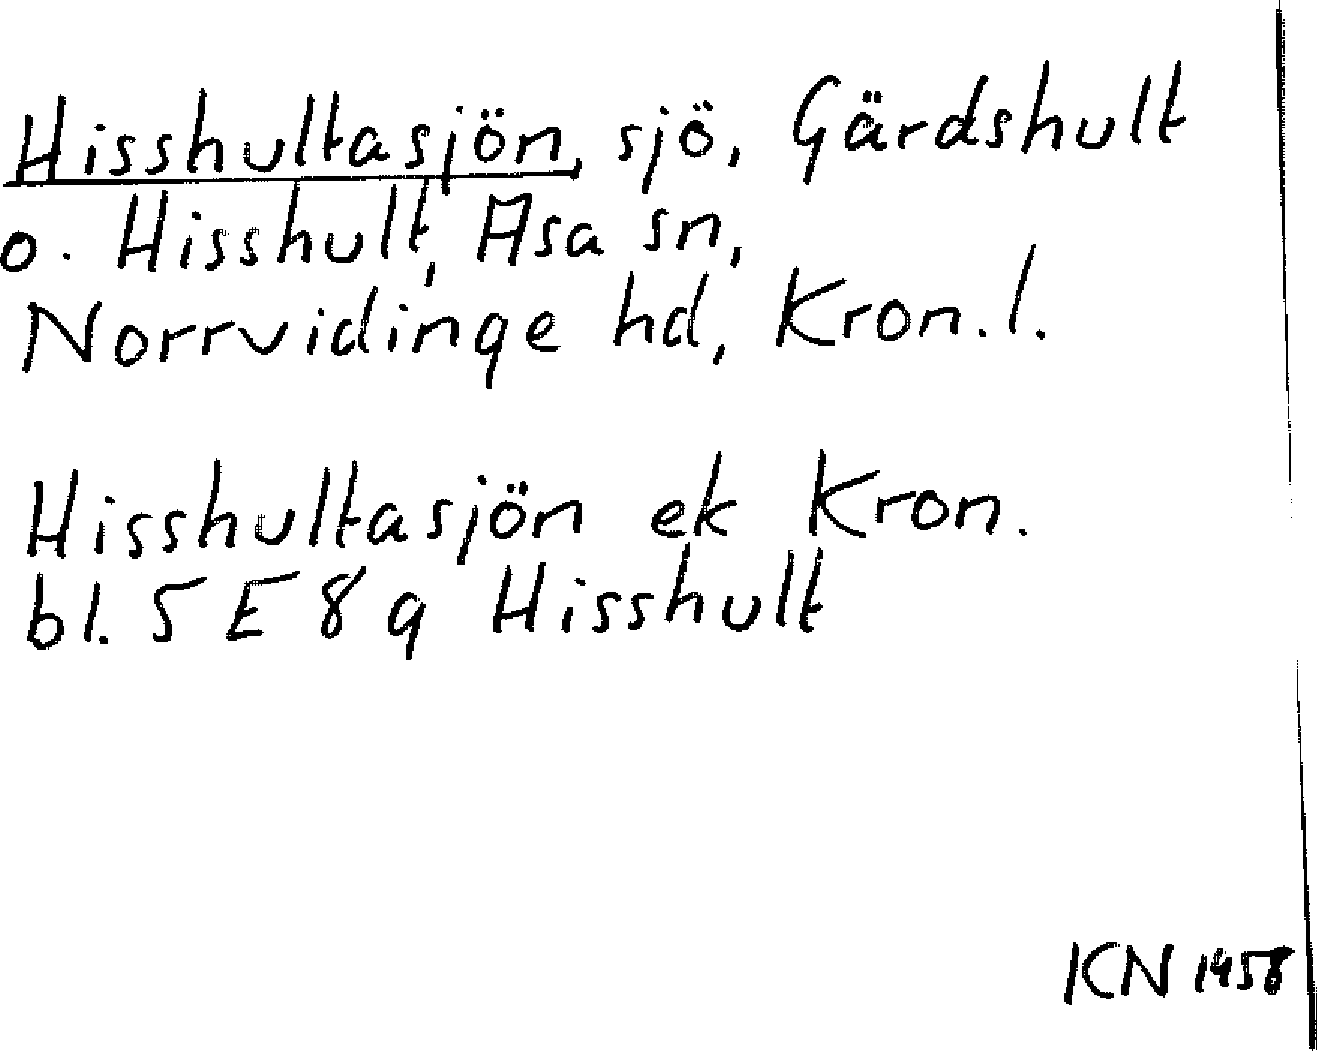 Hisshultasjön, sjö, Gärdshult
o. Hisshult, Asa sn,
Norrvidinge hd, Kron. l.
Hisshultasjön ek Kron.
bl. 5 E 8 g Hisshult
KN 1958